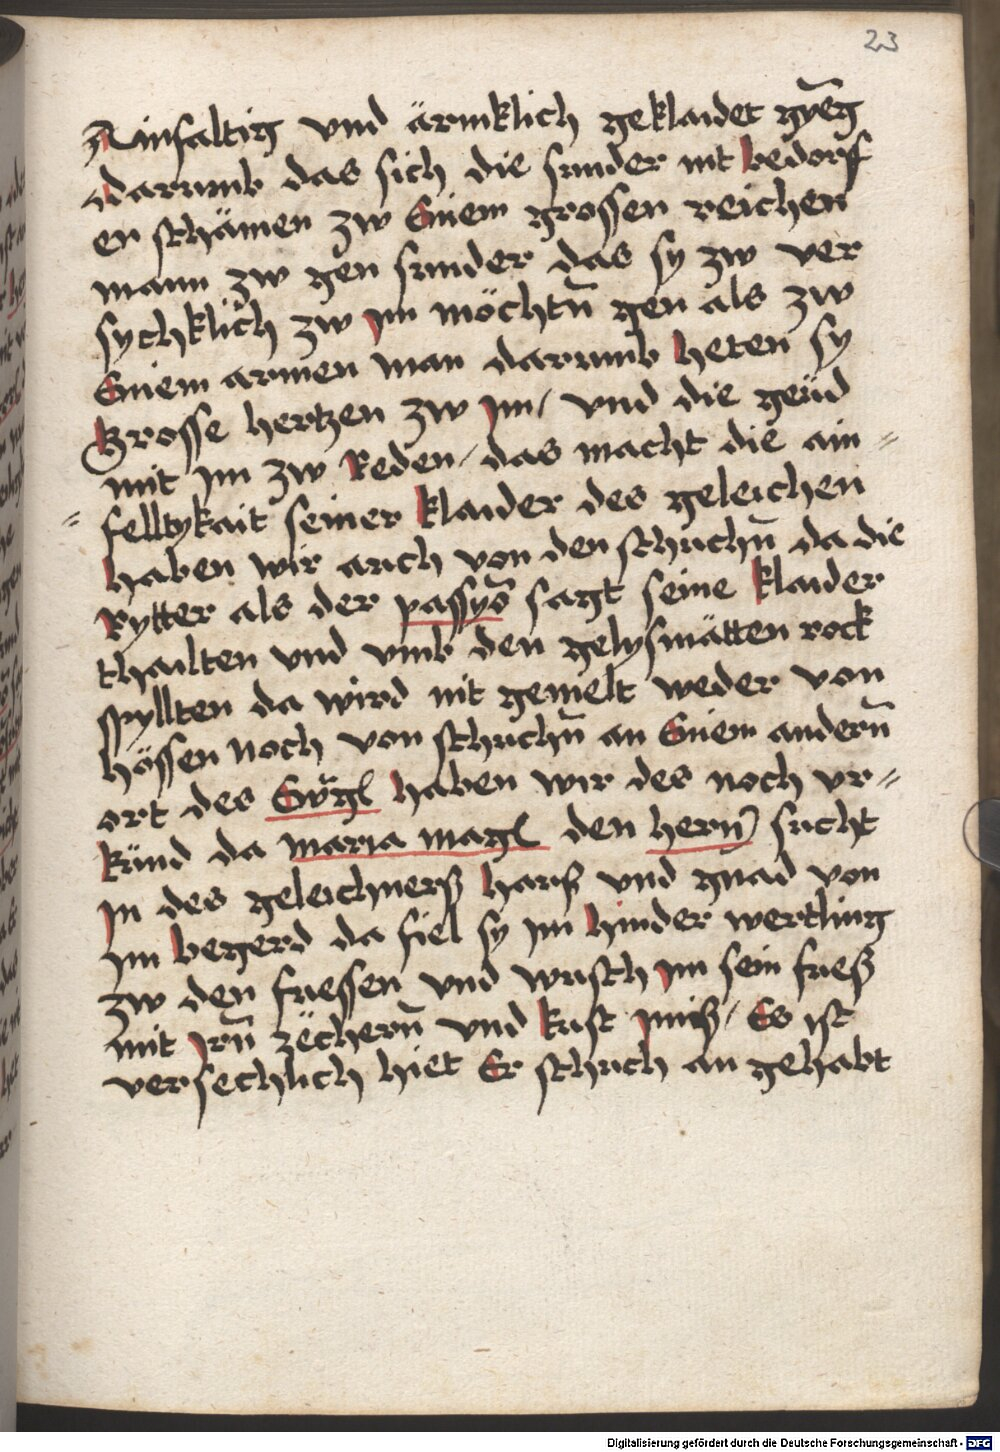 23
Ainfaltig vnd ärmklich geklaidet gyēg
darumb das sich die sunder nit bedorf
en schämen zw Einem grossen reichen
mann zw gen sunder das sy zw ver
sychklich zw im möchtn̄ gen als zw
Einem armen man darumb heten sy
Grosse hertzen zw im / vnd die geüd
mit im zw Reden / das macht die ain =
= felltykait seiner klaider des geleichen
haben wir auch von den schuchn̄ da die
Rytter als der passyō sagt seine klaider
thailten vnd vmb den gelysmätten rock
spyllten da wird nit gemelt weder von
hössen noch von schuchn̄ an Einem andern̄
ort des Ewgl haben wir des noch vr =
künd da maria magl den hern̄ sucht
In des geleichnerß hauß vnd gnad von
im begerd da fiel sy im hinder wertling
zw den fuessen vnd wusch im sein fueß
mit irn̄ zëchern̄ vnd kust imß / Es ist
versechlich hiet Er schuch an gehabt
Digitalisierung gefördert durch die Deutsche Forschungsgemeinschaft - DFG